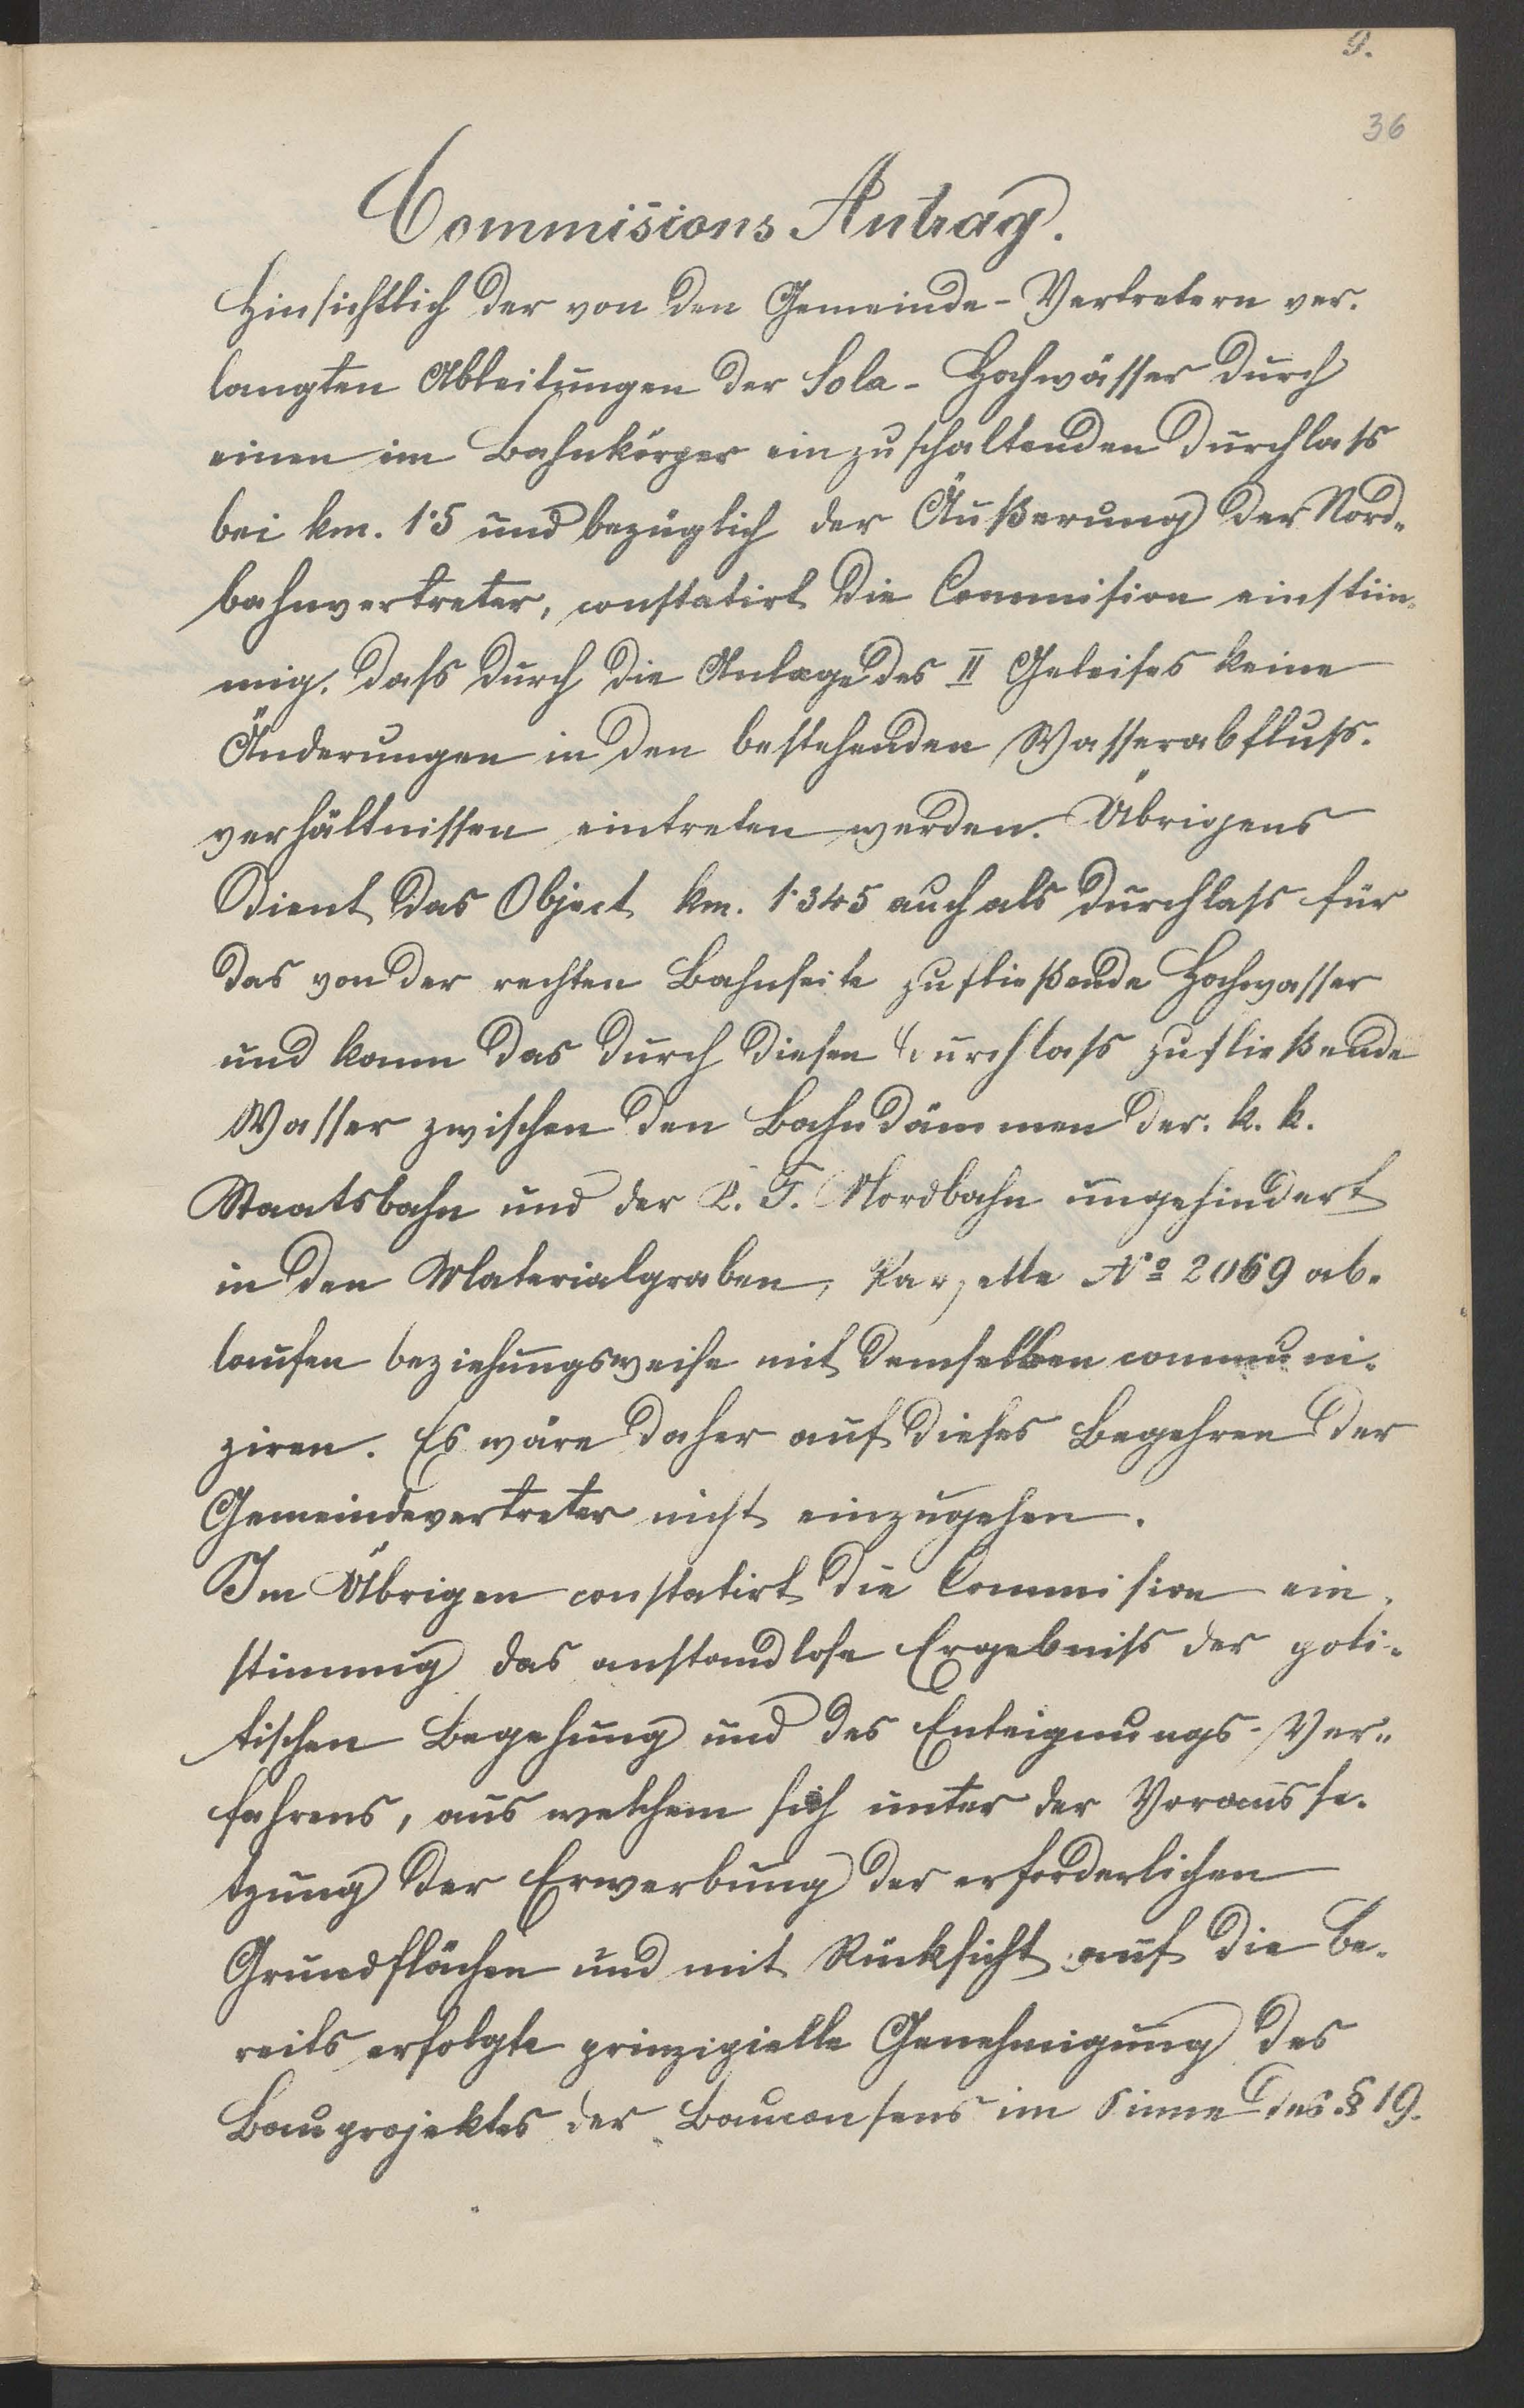 9.
36
Commisions Antrag.
Hinsichtlich der von den Gemeinde-Vertretern ver-
langten Ableitungen der Sola-Hochwässer durch
einen im Bahnkörper einzuschaltenden Durchlass
bei km. 1·5 und bezüglich der Äußerung der Nord-
bahnvertreter, constatirt die Commision einstim-
mig, dass durch die Anlage des II Geleises keine
Änderungen in den bestehenden Wasserabfluss-
verhältnissen eintreten werden. Übrigens
dient das Object km. 1·345 auch als Durchlass für
das von der rechten Bahnseite zufließende Hochwasser
und kann das durch diesen Durchlass zufließende
Wasser zwischen den Bahndämmen der k. k.
Staatsbahn und der K. F. Nordbahn ungehindert
in den Materialgraben, Parzelle № 2069 ab-
laufen beziehungsweise mit demselben communi-
ziren. Es wäre daher auf dieses Begehren der
Gemeindevertreter nicht einzugehen.
Im Übrigen constatirt die Commision ein-
stimmig das anstandlose Ergebniss der poli-
tischen Begehung und des Enteignungs-Ver-
fahrens, aus welchem sich unter der Vorausse-
tzung der Erwerbung der erforderlichen
Grundflächen und mit Rücksicht auf die be-
reits erfolgte prinzipielle Genehmigung des
Bauprojektes der Bauconsens im Sinne des § 19.